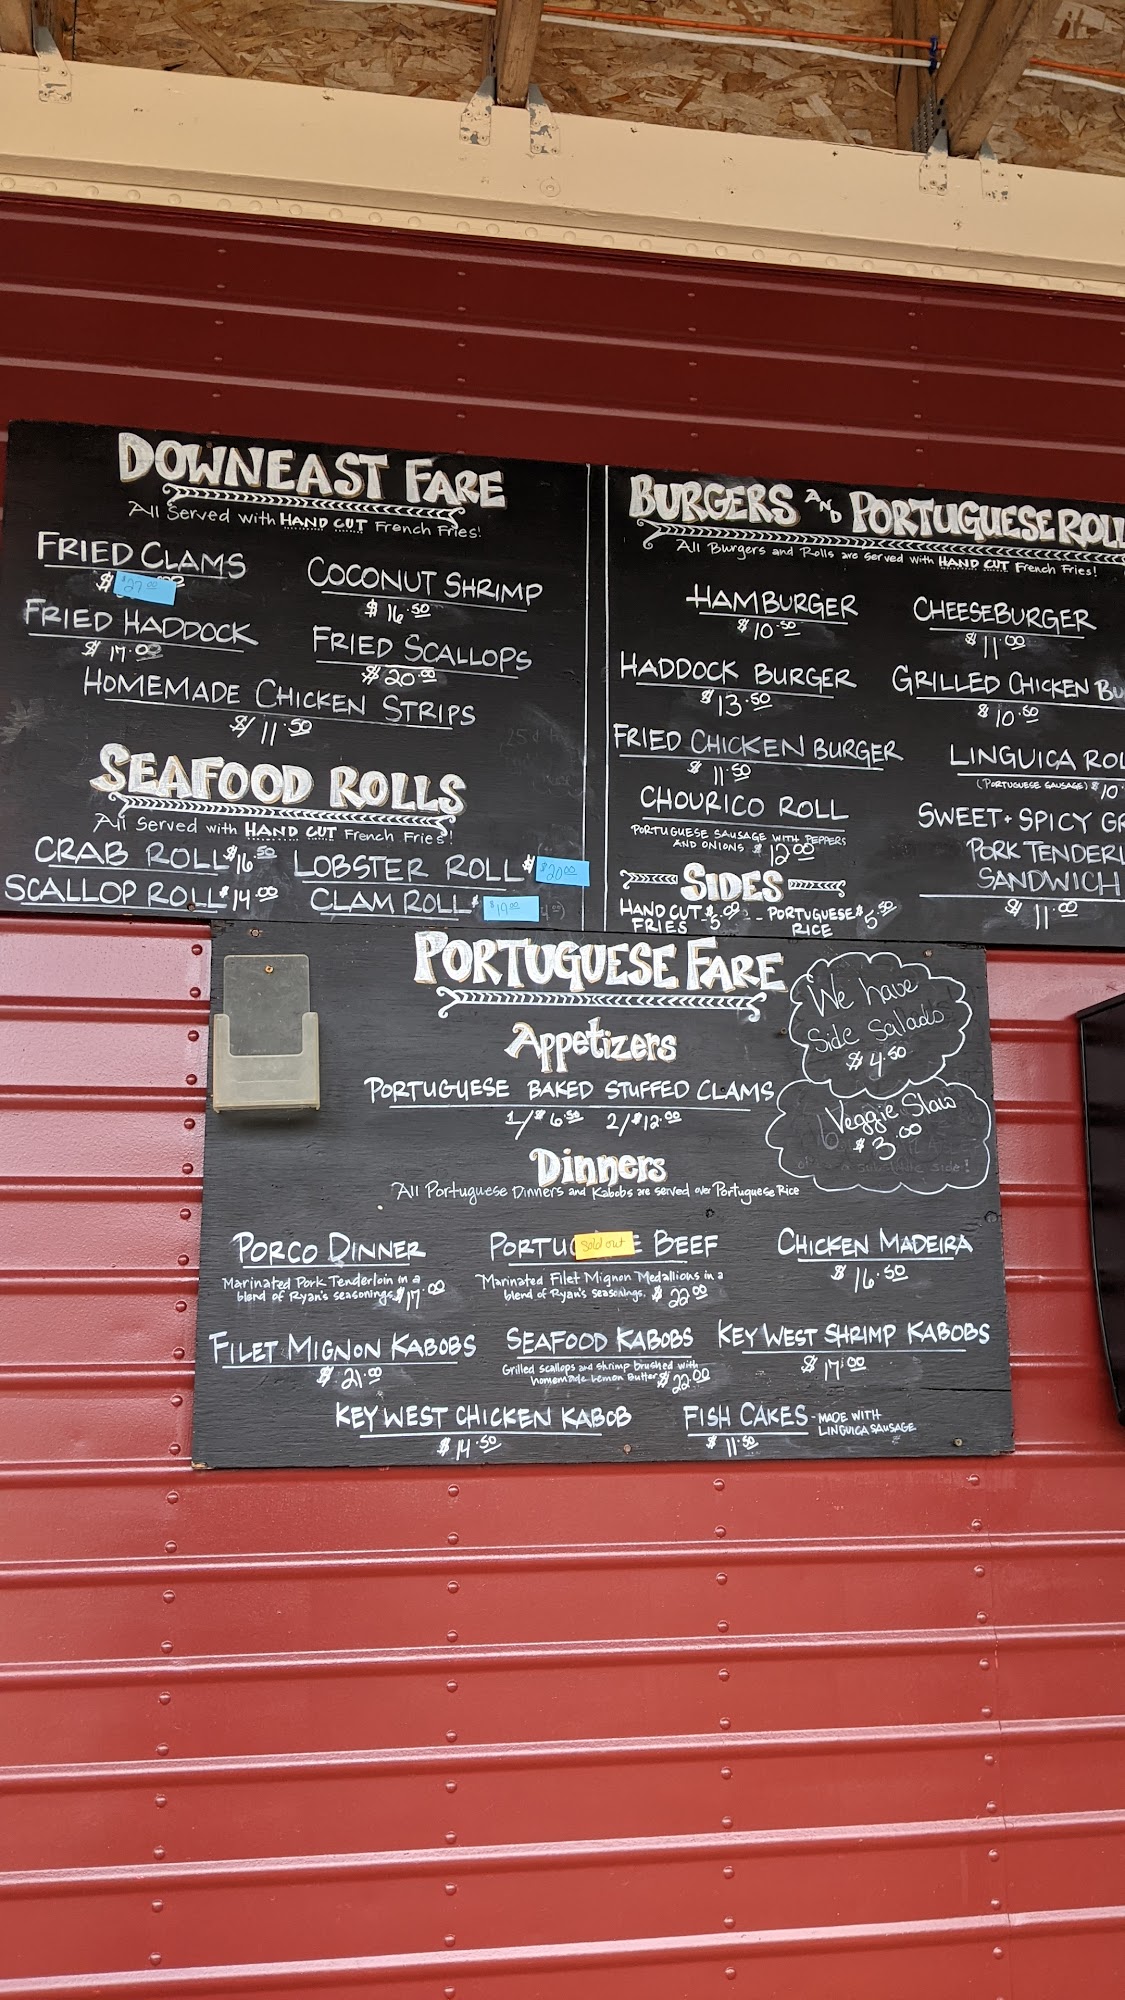 DOWNEAST FARE
All Served with HAND CUT French Fries!
FRIED CLAMS
$ $27.00
COCONUT SHRIMP
$16.50
FRIED HADDOCK
$17.00
FRIED SCALLOPS
$20.00
HOMEMADE CHICKEN STRIPS
$11.50
SEAFOOD ROLLS
All Served with HAND CUT French Fries!
CRAB ROLL $16.50
LOBSTER ROLL $ $20.00
SCALLOP ROLL $14.00
CLAM ROLL $ $19.00
BURGERS AND PORTUGUESE ROLL
All Burgers and Rolls are served with HAND CUT French Fries!
HAMBURGER
$10.50
CHEESEBURGER
$11.00
HADDOCK BURGER
$13.50
GRILLED CHICKEN BU
$10.50
FRIED CHICKEN BURGER
$11.50
LINGUICA ROL
(PORTUGUESE SAUSAGE) $10.
CHOURICO ROLL
PORTUGUESE SAUSAGE WITH PEPPERS
AND ONIONS $12.00
SWEET + SPICY GR
PORK TENDERL
SANDWICH
$11.00
SIDES
HAND CUT FRIES - $5.00
PORTUGUESE RICE $5.50
PORTUGUESE FARE
Appetizers
PORTUGUESE BAKED STUFFED CLAMS
1/$6.50 2/$12.00
We have
Side Salads
$4.50
Veggie Slaw
$3.00
Dinners
All Portuguese Dinners and Kabobs are served over Portuguese Rice
PORCO DINNER
Marinated Pork Tenderloin in a
blend of Ryan's seasonings. $17.00
PORTU Sold out E BEEF
Marinated Filet Mignon Medallions in a
blend of Ryan's Seasonings. $22.00
CHICKEN MADEIRA
$16.50
FILET MIGNON KABOBS
$21.00
SEAFOOD KABOBS
Grilled Scallops and shrimp brushed with
homemade Lemon Butter $22.00
KEY WEST SHRIMP KABOBS
$17.00
KEY WEST CHICKEN KABOB
$14.50
FISH CAKES - MADE WITH
LINGUICA SAUSAGE
$11.50